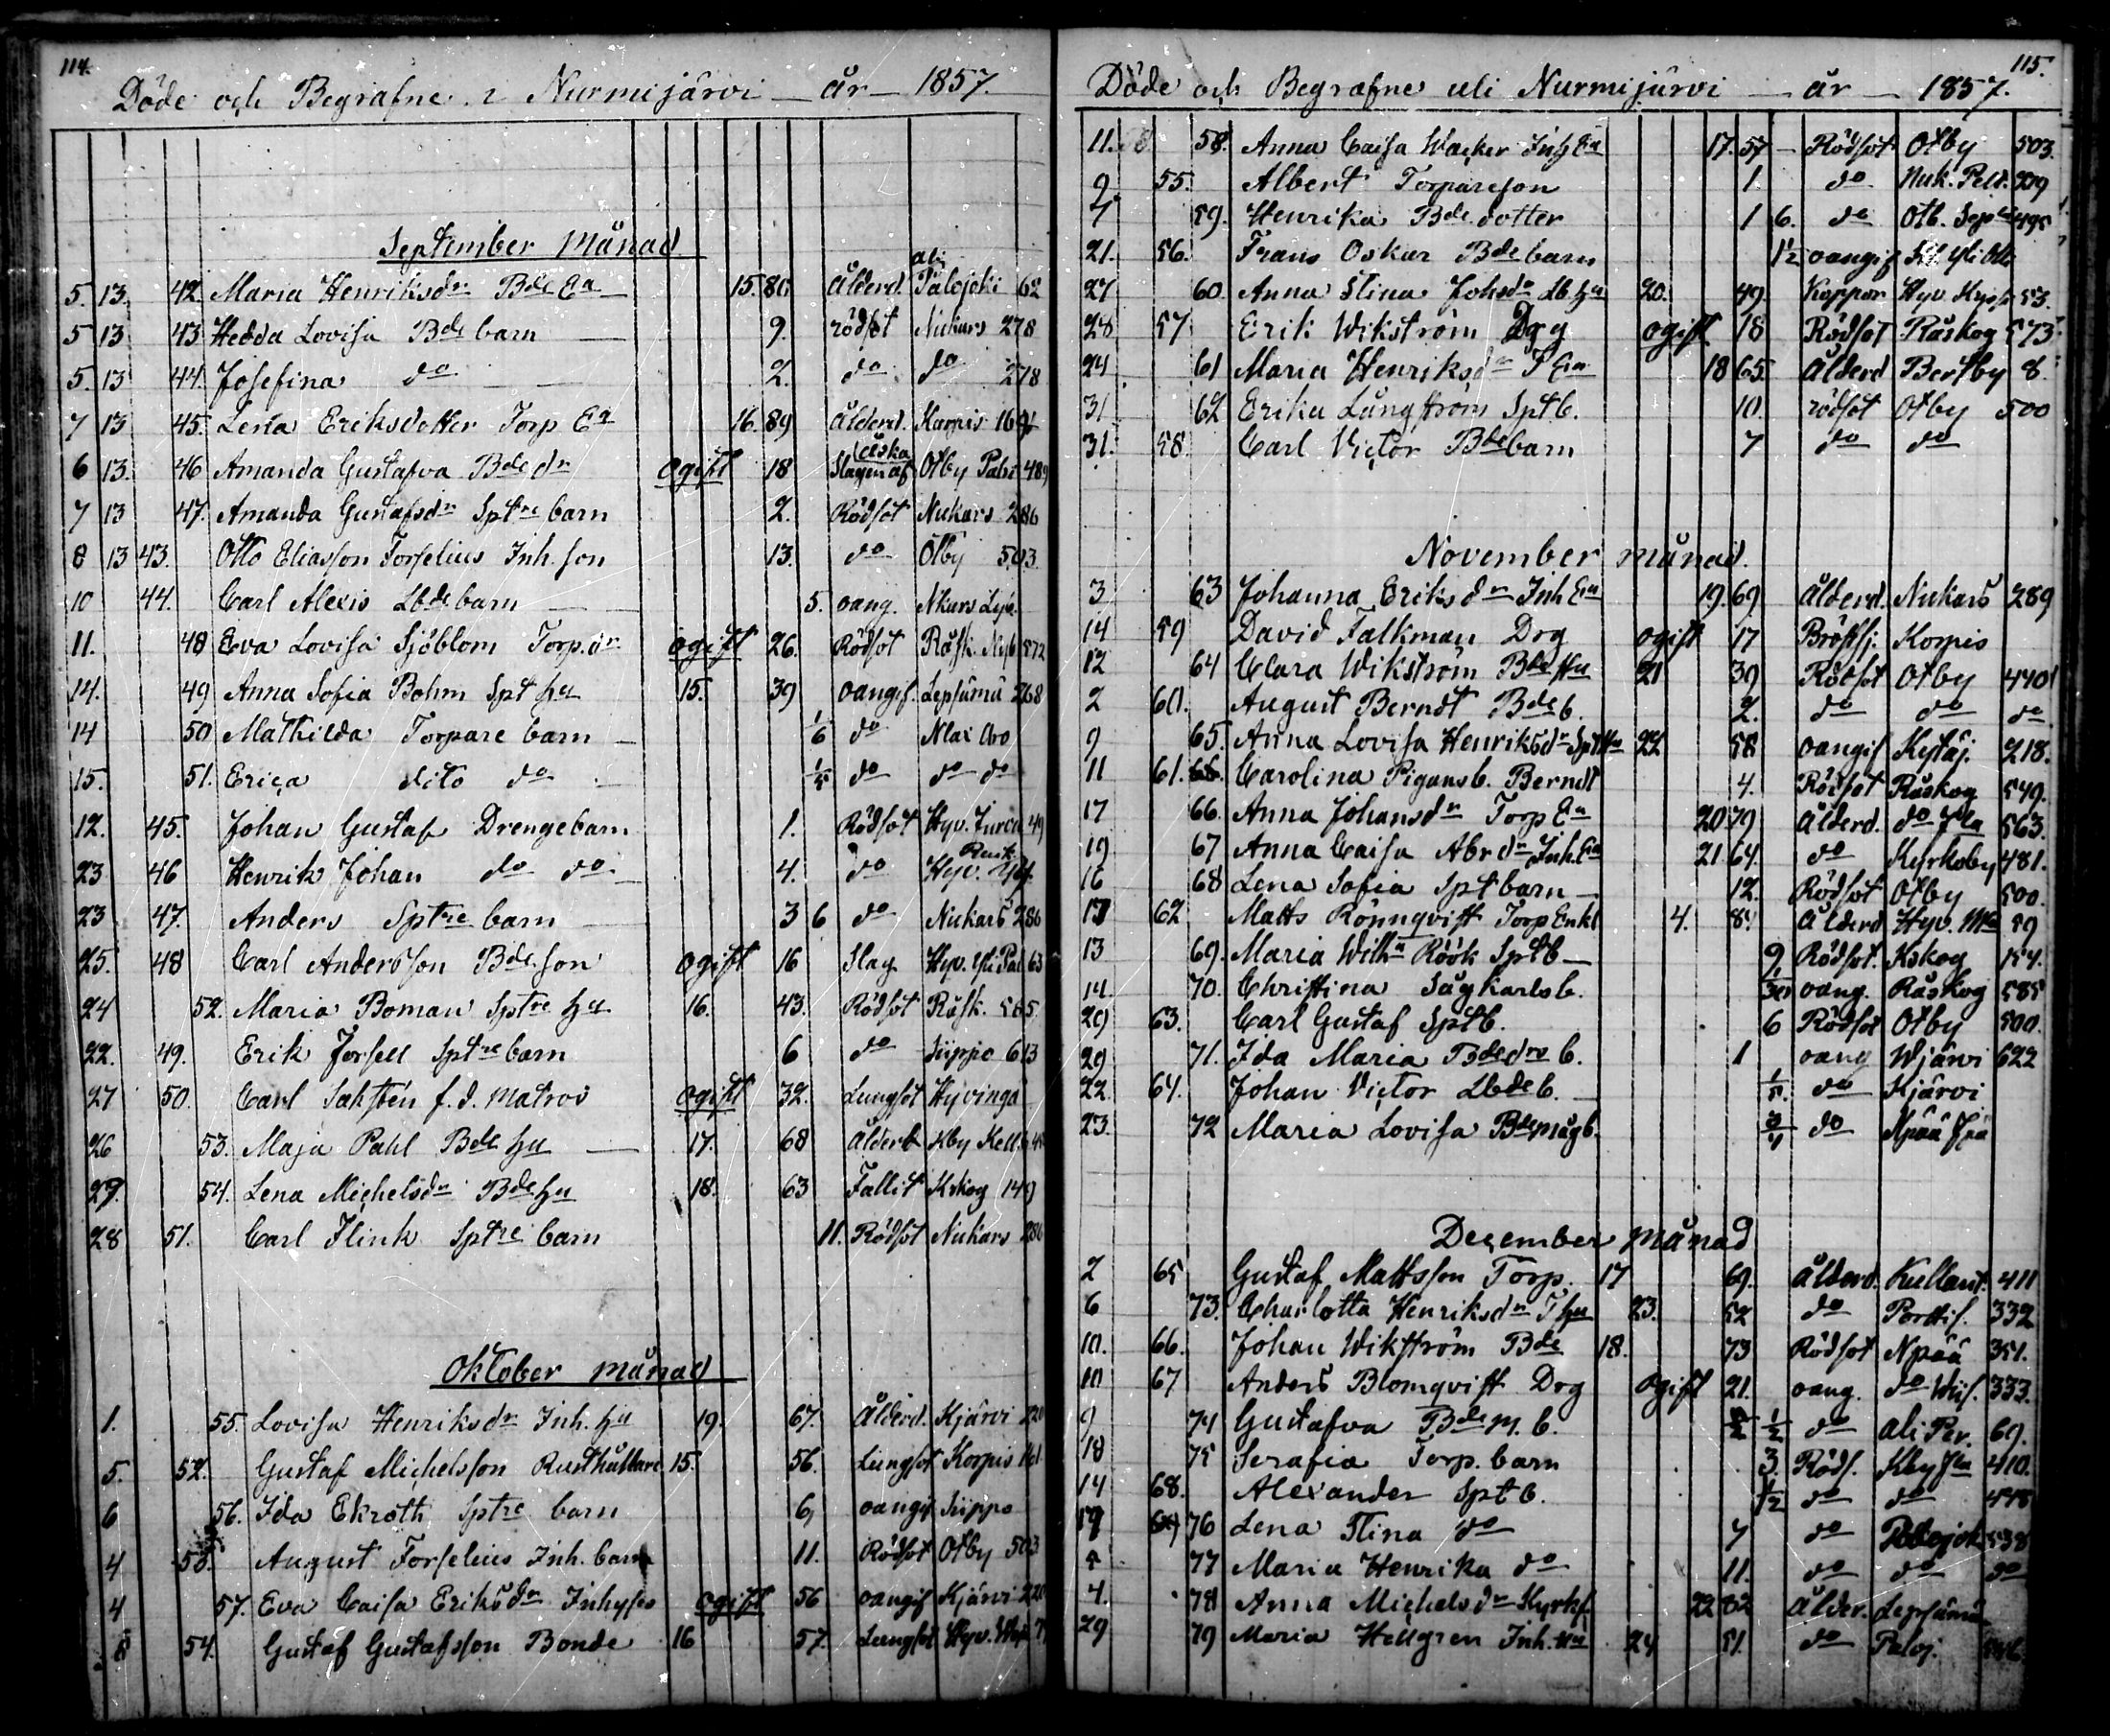 114.
Döde och Begrafne i Nurmijärvi år 1857.
September månad
5 13 42 Maria Henriksdr Bde Ea 15. 80 Ålderd. Ali Palojoki 62
5 13 43 Hedda Lovisa Bde barn 9. rödsot Nukars 278
5. 13 44. Josefina do 2. do do 278
7 13 45. Lena Eriksdotter Torp Ea 16. 89 Ålderd. Korpis
6 13. 46 Amanda Gustafva Bde dr ogift 18 Slagen af åska Otby 489
7 13 47. Amanda Gustafsdr Sptre barn 2. Rödsot Nukars 286
8 13 43. Otto Eliasson Forselius Inh. son 13. do Otby 503.
10 44. Carl Alexis Lbde barn 5. oang. Nkars
11. 48 Eva Lovisa Sjöblom Torp. dr ogift 26. Rödsot Råsk. 572
14. 49 Anna Sofia Bohm Spt hu 15. 39 oangif. Lepsämä 268
14 50 Mathilda Torpare barn 1/6 do
15. 51. Erica dito do do do do
12. 45. Johan Gustaf Drengebarn 1. Rödsot Hyv. 49
23 46 Henrik Johan do do 4. do Hyv.
23 47. Anders Sptre barn 3 6 do Nukars 286
25. 48 Carl Andersson Bde son ogift 16 Slag Hyv. 63
24 52. Maria Boman Sptre hu 16. 43. Rödsot Råsk. 565
22. 49. Erik Forsell Sptre barn 6 do Siippo 613
27 50. Carl Saksten f.d. Matros ogift 32. Lungsot Hyvinga
26 53. Maja Pahl Bde hu 17. 68 Ålderd Kby
27. 54. Lena Michelsdr Bde hu 18. 63 Fallit Krkog 149
28 51. Carl Flink Sptre barn 11. Rödsot Nukars 286
Oktober månad
1. 55. Lovisa Henriksdr Inh. hu 19. 67. Ålderd. Kjärvi 220
5. 52. Gustaf Michelsson Rusthållare 15. 56. Lungsot Korpis
6 56. Ida Ekroth Sptre barn 6, oangif Siippo
4 53. August Forselius Inh. barn 11. Rödsot Otby 503
4 57. Eva Caisa Eriksdr Inhyses ogift 56 oangif Kjärvi 220
8 54. Gustaf Gustafsson Bonde 16 57. Lungsot Hyv.
115.
Döde och Begrafne uti Nurmijärvi år 1857.
11. 58. Anna Caisa Wacker Inh Ea 17. 57 Rödsot Otby 503.
9 55. Albert Torpareson 1. do Nuk. 279
7 59. Henrika Bde dotter 1 6. do Otb. 495
21. 56. Frans Oskar Bde barn 1/2 oangif
27 60. Anna Stina Johsdr Lb. hu 20. 49. Koppor Hyv. 53.
28 57 Erik Wikström Drg ogift 18 Rödsot Råskog 573
24 61 Maria Henriksdr T Ea 18 65. Ålderd Bertby 8.
31 62 Erika Långström Sptb. 10. rödsot Otby 500
31. 58 Carl Victor Bde barn 7 do do
November månad.
3 63 Johanna Eriksdr Inh Ea 19. 69 Ålderd. Nukars 289
14 59 David Falkman Drg ogift 17 Bröstsj. Korpis
12 64 Clara Wikström Bde Hu 21 39 Rödsot Otby 440
2 60. August Berndt Bde b. 2. do do do
9 65. Anna Lovisa Henriksdr Spt Hu 22 58 oangif Kytäj. 218.
11 61. Carolina Pigans b. Berndt 4. Rödsot Råskog 549.
17 66. Anna Johansdr Torp Ea 20 79 Ålderd. do 563.
19 67 Anna Caisa Abr dr Inh Ea 21 64. do Kyrkoby 481.
16 68 Lena Sofia Spt barn 12. Rödsot Otby 500.
17 62 Matts Rönnqvist Torp Enkl 4. Ålderd Hyv. 59
13 69. Maria Wilh:a Röök Sptb 9. Rödsot. Kskog 154.
14. 70. Christina Sågkarls b. oang. Råskog 585
29 63. Carl Gustaf Sptb. 6 Rödsot Otby 500.
29 71. Ida Maria Bde drs b. 1 oang Wjärvi 622
22. 64. Johan Victor Lbde b. do Kjärvi
23. 72 Maria Lovisa Bde måg b. 3/4 do
December månad
2 65 Gustaf Mattsson Torp. 17 69. Ålderd. 411
6 73. Charlotta Henriksdr T hu 23. 52 do Perttil. 332
10. 66. Johan Wikström Bde 18. 73 Rödsot Npää 351.
10 67 Anders Blomqvist Drg ogift 21. oang. do 333.
9 74 Gustafva Bde M. b. 1/2 do Ali Per. 69.
18 75 Serafia Torp. barn 3. Röds. Kby 410.
14 68. Alexander Spt b. 1/2 do do 448
17 76 Lena Stina do 7 do Palojok 538
5 77 Maria Henrika do 11. do do do
4. 78 Anna Michelsdr Kyrkf. 22 82 Ålder. Lepsämä
29 79 Maria Hellgren Inh. Hu 24 51. do Paloj.